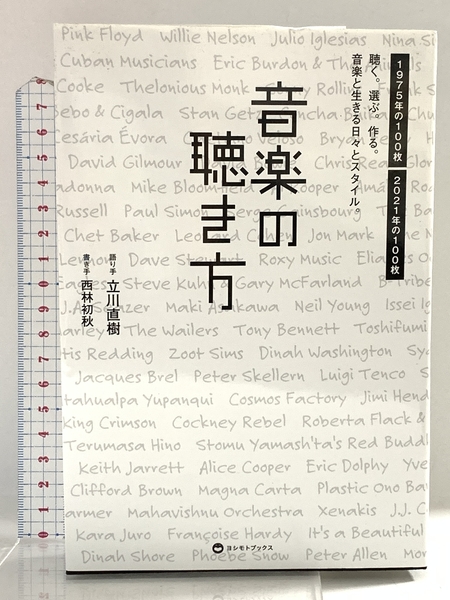 1975年の100枚 2021年の100枚
聴く。選ぶ。作る。
音楽と生きる日々とスタイル。
音楽の
聴き方
語り手 立川直樹
書き手 西林初秋
Pink Floyd Willie Nelson Julio Iglesias Nina Si
Cuban Musicians Eric Burdon & The Animals
Cooke Thelonious Monk Rollin
Bebo & Cigala Stan Getz Concha Buika
Cesária Évora Veloso Bryan
David Gilmour Chris Rea
adonna Mike Bloomfield Cooper
Russell Paul Simon Serge Gainsbourg The B
Chet Baker Leonard Cohen Jon Mark
Lennon Dave Stewart Roxy Music Elia
ages Steve Kuhn Gary McFarland B-Tribe
J.A. Seazer Maki Asakawa Neil Young Issei
arley & The Wailers Tony Bennett Toshifumi
tis Redding Zoot Sims Dinah Washington Sy
Jacques Brel Peter Skellern Luigi Tenco S
tahualpa Yupanqui Cosmos Factory Jimi Hend
king Crimson Cockney Rebel Roberta Flack &
Terumasa Hino Stomu Yamash'ta's Red Buddh
Keith Jarrett Alice Cooper Eric Dolphy Yve
Clifford Brown Magna Carta Plastic Ono Ba
armer Mahavishnu Orchestra Xenakis J.J. C
Kara Juro Françoise Hardy It's a Beautiful
Dinah Shore Phoebe Snow Peter Allen Mor
ヨシモトブックス